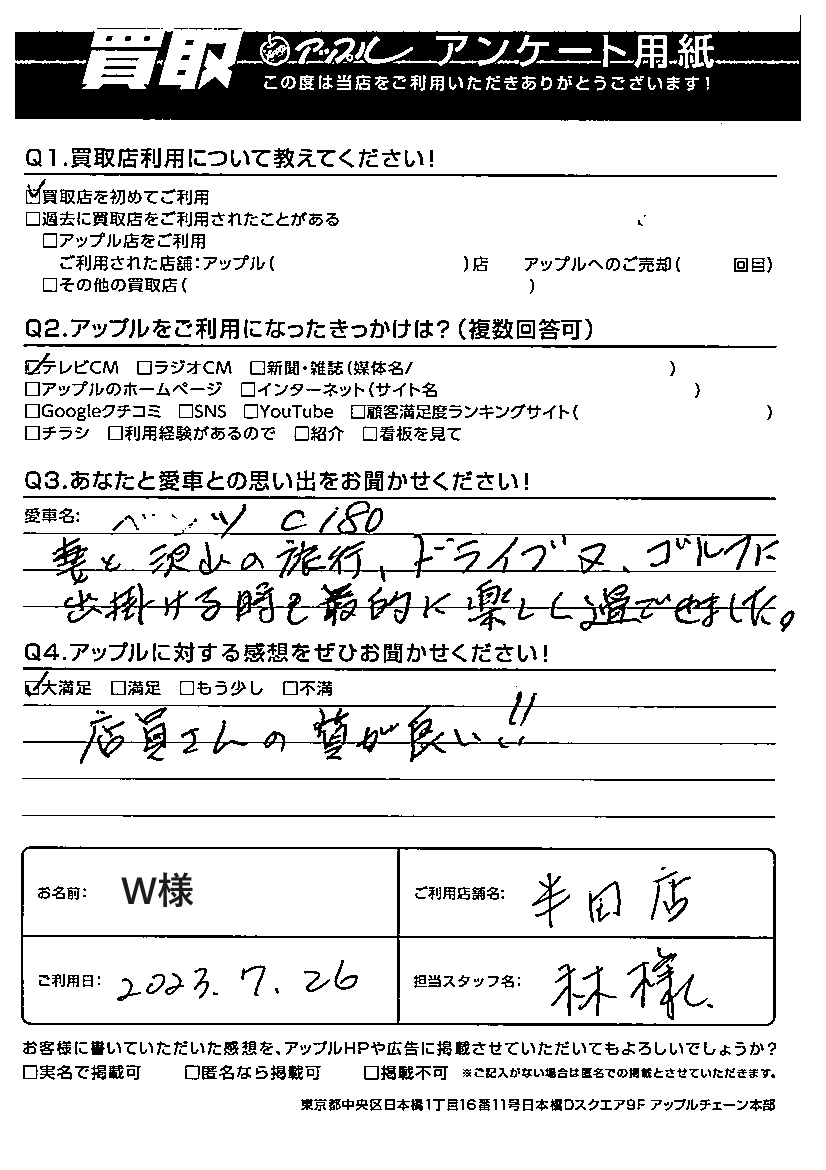 買取 アップル アンケート用紙
この度は当店をご利用いただきありがとうございます!
Q1.買取店利用について教えてください!
☑買取店を初めてご利用
□過去に買取店をご利用されたことがある
□アップル店をご利用
ご利用された店舗:アップル( )店 アップルへのご売却( 回目)
□その他の買取店( )
Q2.アップルをご利用になったきっかけは?(複数回答可)
☑テレビCM □ラジオCM □新聞・雑誌(媒体名/ )
□アップルのホームページ □インターネット(サイト名 )
□Googleクチコミ □SNS □YouTube □顧客満足度ランキングサイト( )
□チラシ □利用経験があるので □紹介 □看板を見て
Q3.あなたと愛車との思い出をお聞かせください!
愛車名: ベンツ C180
妻と沢山の旅行、ドライブ又、ゴルフに
出掛ける時も最的に楽しく過ごせました。
Q4.アップルに対する感想をぜひお聞かせください!
☑大満足 □満足 □もう少し □不満
店員さんの質が良い!!
お名前: W様
ご利用店舗名: 半田店
ご利用日: 2023.7.26
担当スタッフ名: 林様
お客様に書いていただいた感想を、アップルHPや広告に掲載させていただいてもよろしいでしょうか?
□実名で掲載可 □匿名なら掲載可 □掲載不可 ※ご記入がない場合は匿名での掲載とさせていただきます。
東京都中央区日本橋1丁目16番11号日本橋Dスクエア9F アップルチェーン本部